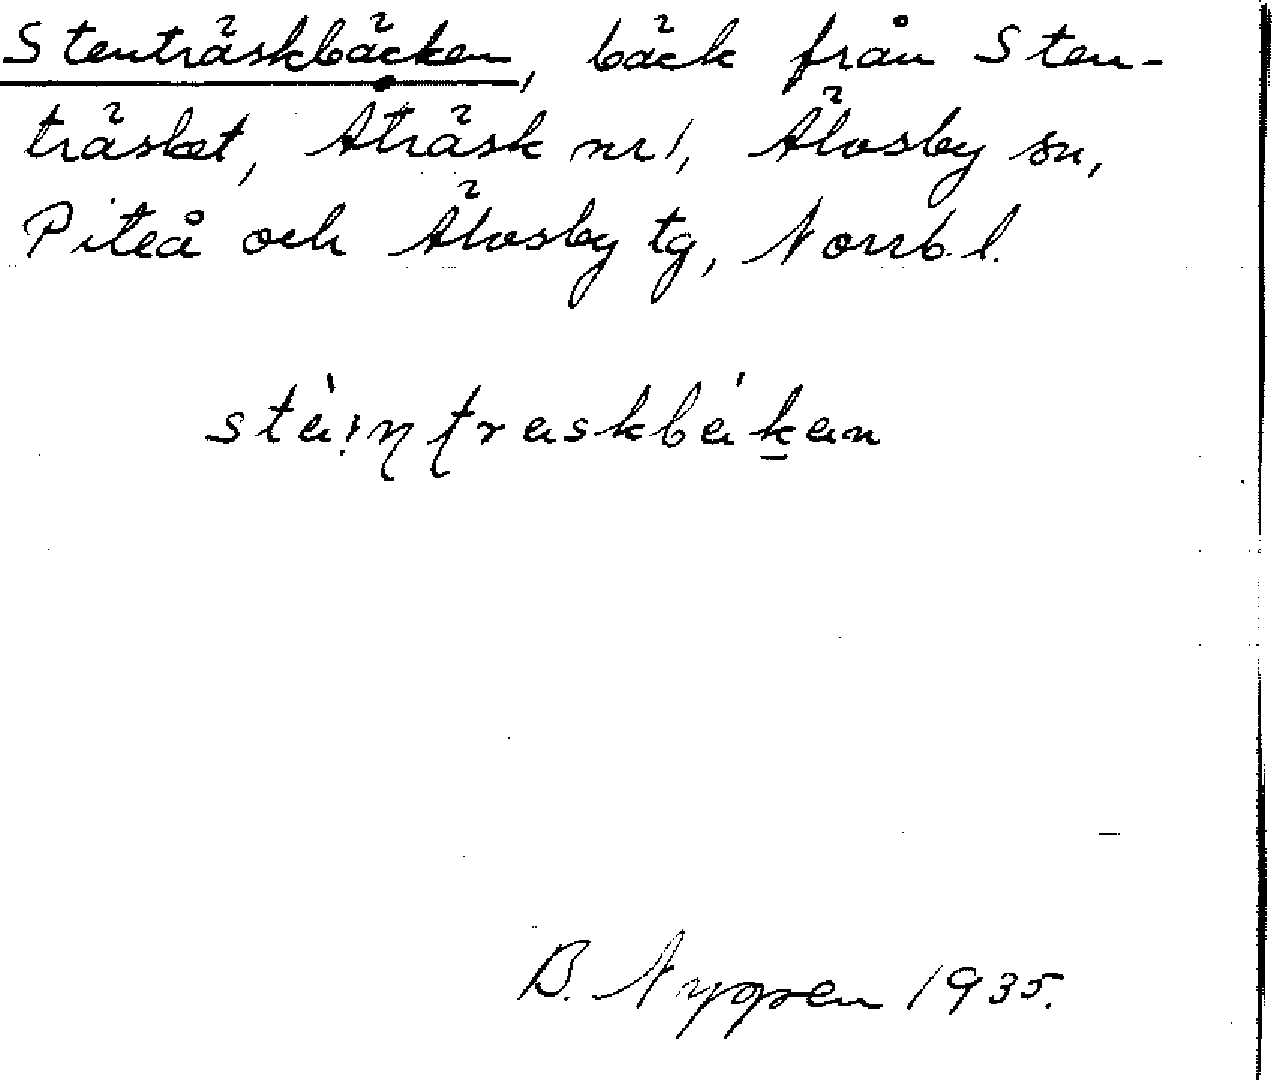 Stenträskbäcken, bäck från Sten-
träsket, Åträsk nr 1, Älvsby sn,
Piteå och Älvsby tg, Norrb. l.
B. Nygren 1935.